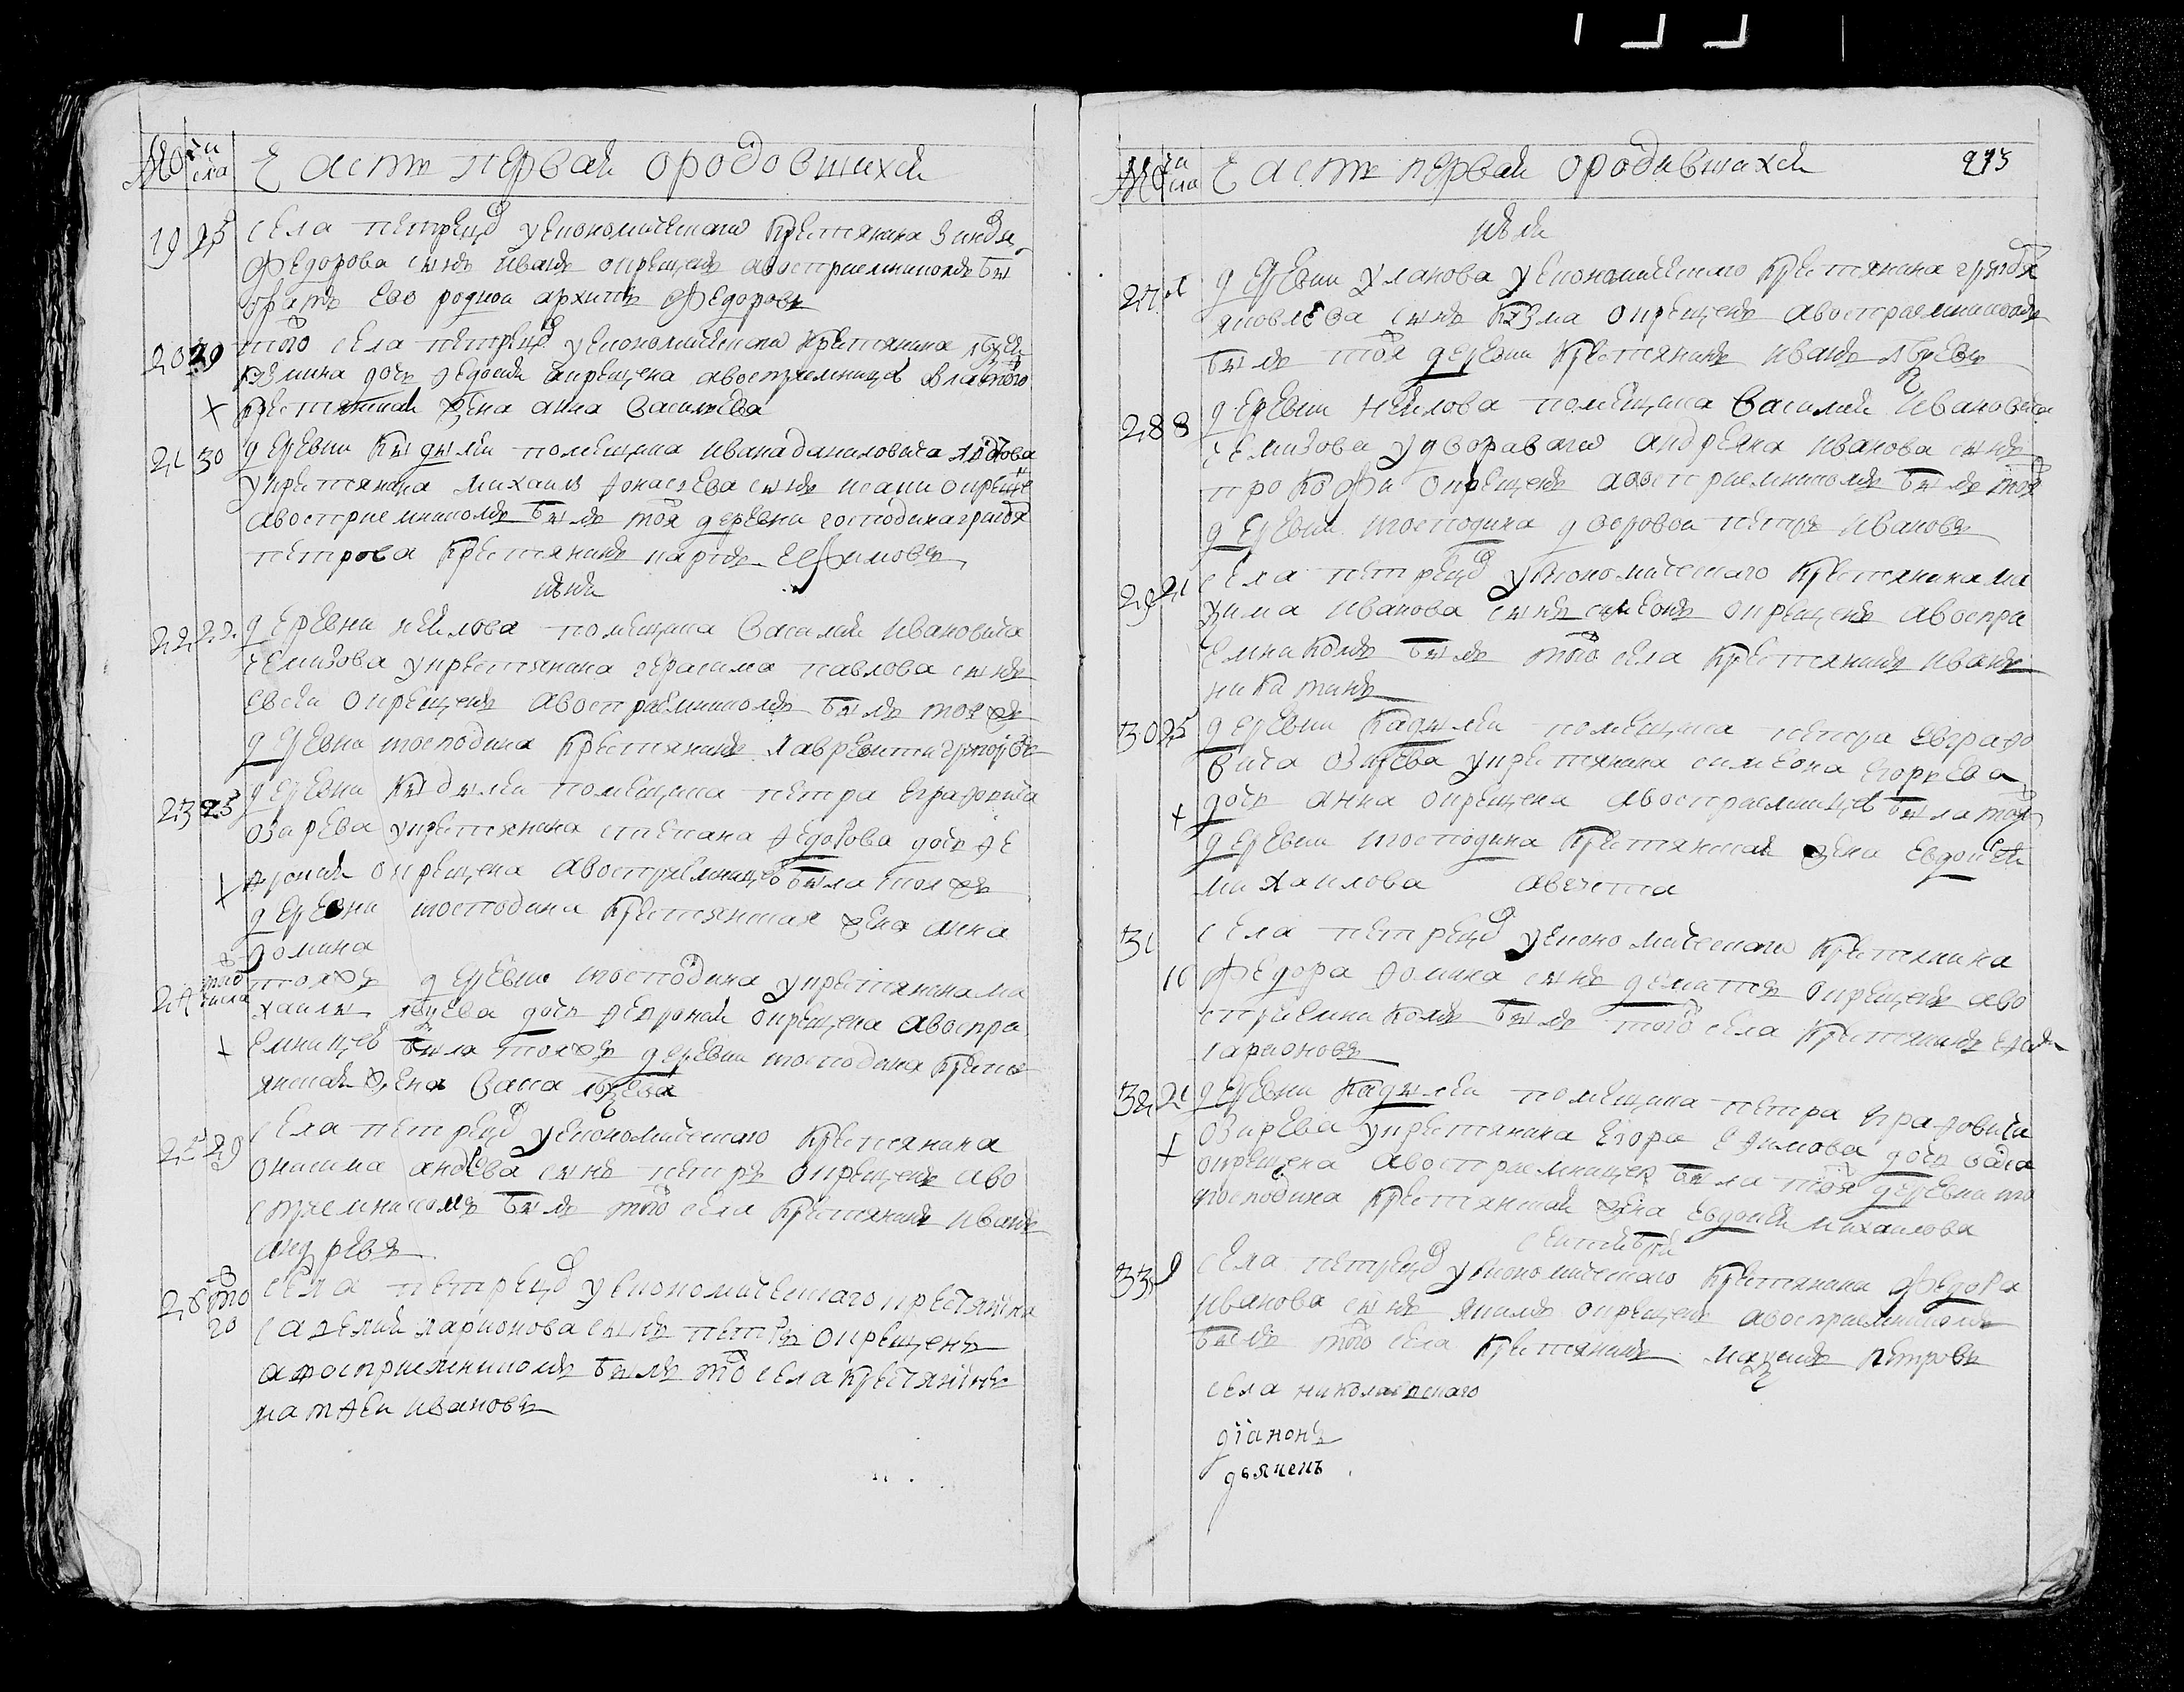 № чи сла Часть первая ородовшихся
19 25 села петрецо уекономическаго крестянина
Федорова сынъ иванъ окрещенъ авосприемникомъ бы
братъ ево роднои архипъ Федоровъ
20 29 того села петрецо уекономическаго крестянина
кузмина дочь окрещена авосприемницею была того
крестянская жена анна васильева
21 30 деревни кыдылеи помещика ивана даниловича
укрестянина михаила сынъ исаки окреще
авосприемникомъ былъ тоя деревни господина
петрова крестянинъ карпъ ефимовъ
июни
22 22 деревни неилова помещика василия ивановича
чемизова укрестянина герасима павлова сынъ
евсеи окрещенъ авосприемникомъ былъ тояжъ
деревни господина крестянинъ лаврентии
23 25 деревни кыдылеи помещика петра еграфовича
озирева укрестянина степана федорова дочь фе
вронья окрещена авосприемницею была тояжъ
деревни господина крестянская жена анна
фомина
24 того числа тояжъ деревни господина укрестянина ми
хаилы дочь феврония окрещена авоспри
емницею была тояжъ деревни господина крест
янская жена васа
25 29 села петрецо уекономическаго крестянина
онисима андрева сынъ петръ окрещенъ аво
сприемникомъ былъ того села крестянинъ иванъ
андревъ
26 того 20 села петрецо уекономическаго крестянина
савелия ларионова сынъ петръ окрещенъ
авосприемникомъ былъ того села крестянинъ
матфеи ивановъ
№ чи сла Часть первая ородившихся 273
июли
27 деревни уланова уекономическаго крестянина
яковлева сынъ кузма окрещенъ авосприемникомъ
былъ тоя деревни крестянинъ иванъ
28 8 деревни неилова помещика василия ивановича
чемизова удвороваго андреяна иванова сынъ
прокофи окрещенъ авосприемникомъ былъ тоя
деревни господина дворовои петръ ивановъ
29 21 села петрецо уекономическаго крестянина ма
ксима иванова сынъ симеонъ окрещенъ авоспри
емникомъ былъ того села крестянинъ иванъ
никитинъ
30 25 деревни кадылеи помещика петра евграфо
вича озирева укрестянина симеона егорьева
дочь анна окрещена авосприемницею была тоя
деревни господина крестянская жена евдокея
михаилова августа
31 села петрецо уекономическаго крестянина
10 Федора фомина сынъ дементеи окрещенъ аво
сприемникомъ былъ того села крестянинъ
ларионовъ
32 21 деревни кадылеи помещика петра еграфовича
озирева укрестянина егора ефимова дочь васа
окрещена авосприемницею была тоя деревни го
господина крестянская жена евдокея михаилова
сентября
33 9 села петрецо уекономическаго крестянина Федора
иванова сынъ якимъ окрещенъ авосприемникомъ
былъ того села крестянинъ максимъ петровъ
села николаевскаго
дiаконъ
дьячекъ